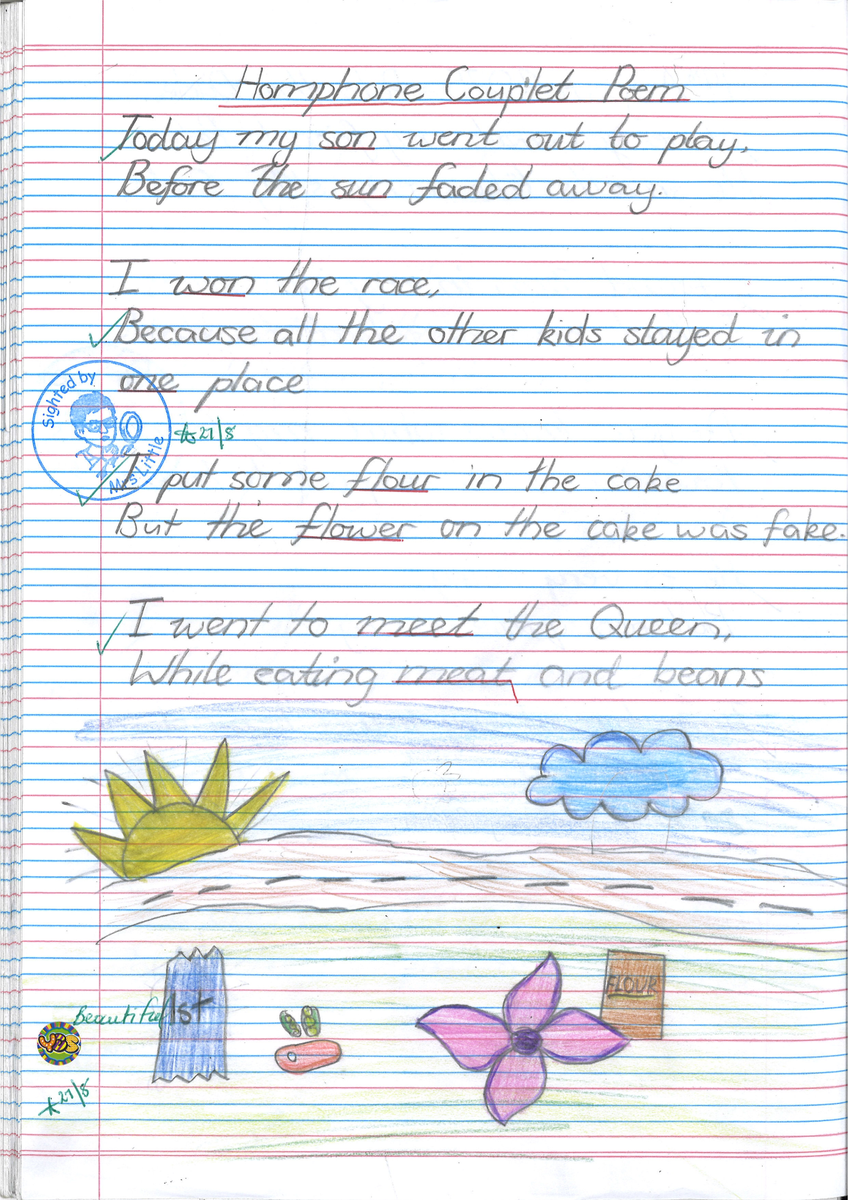 Homphone Couplet Poem
Today my son went out to play,
Before the sun faded away.
I won the race,
Because all the other kids stayed in
one place
Sighted by
Mrs Little
21/8
I put some flour in the cake
But the flower on the cake was fake.
I went to meet the Queen,
While eating meat and beans
FLOUR
1st
Beautiful
YES
21/8